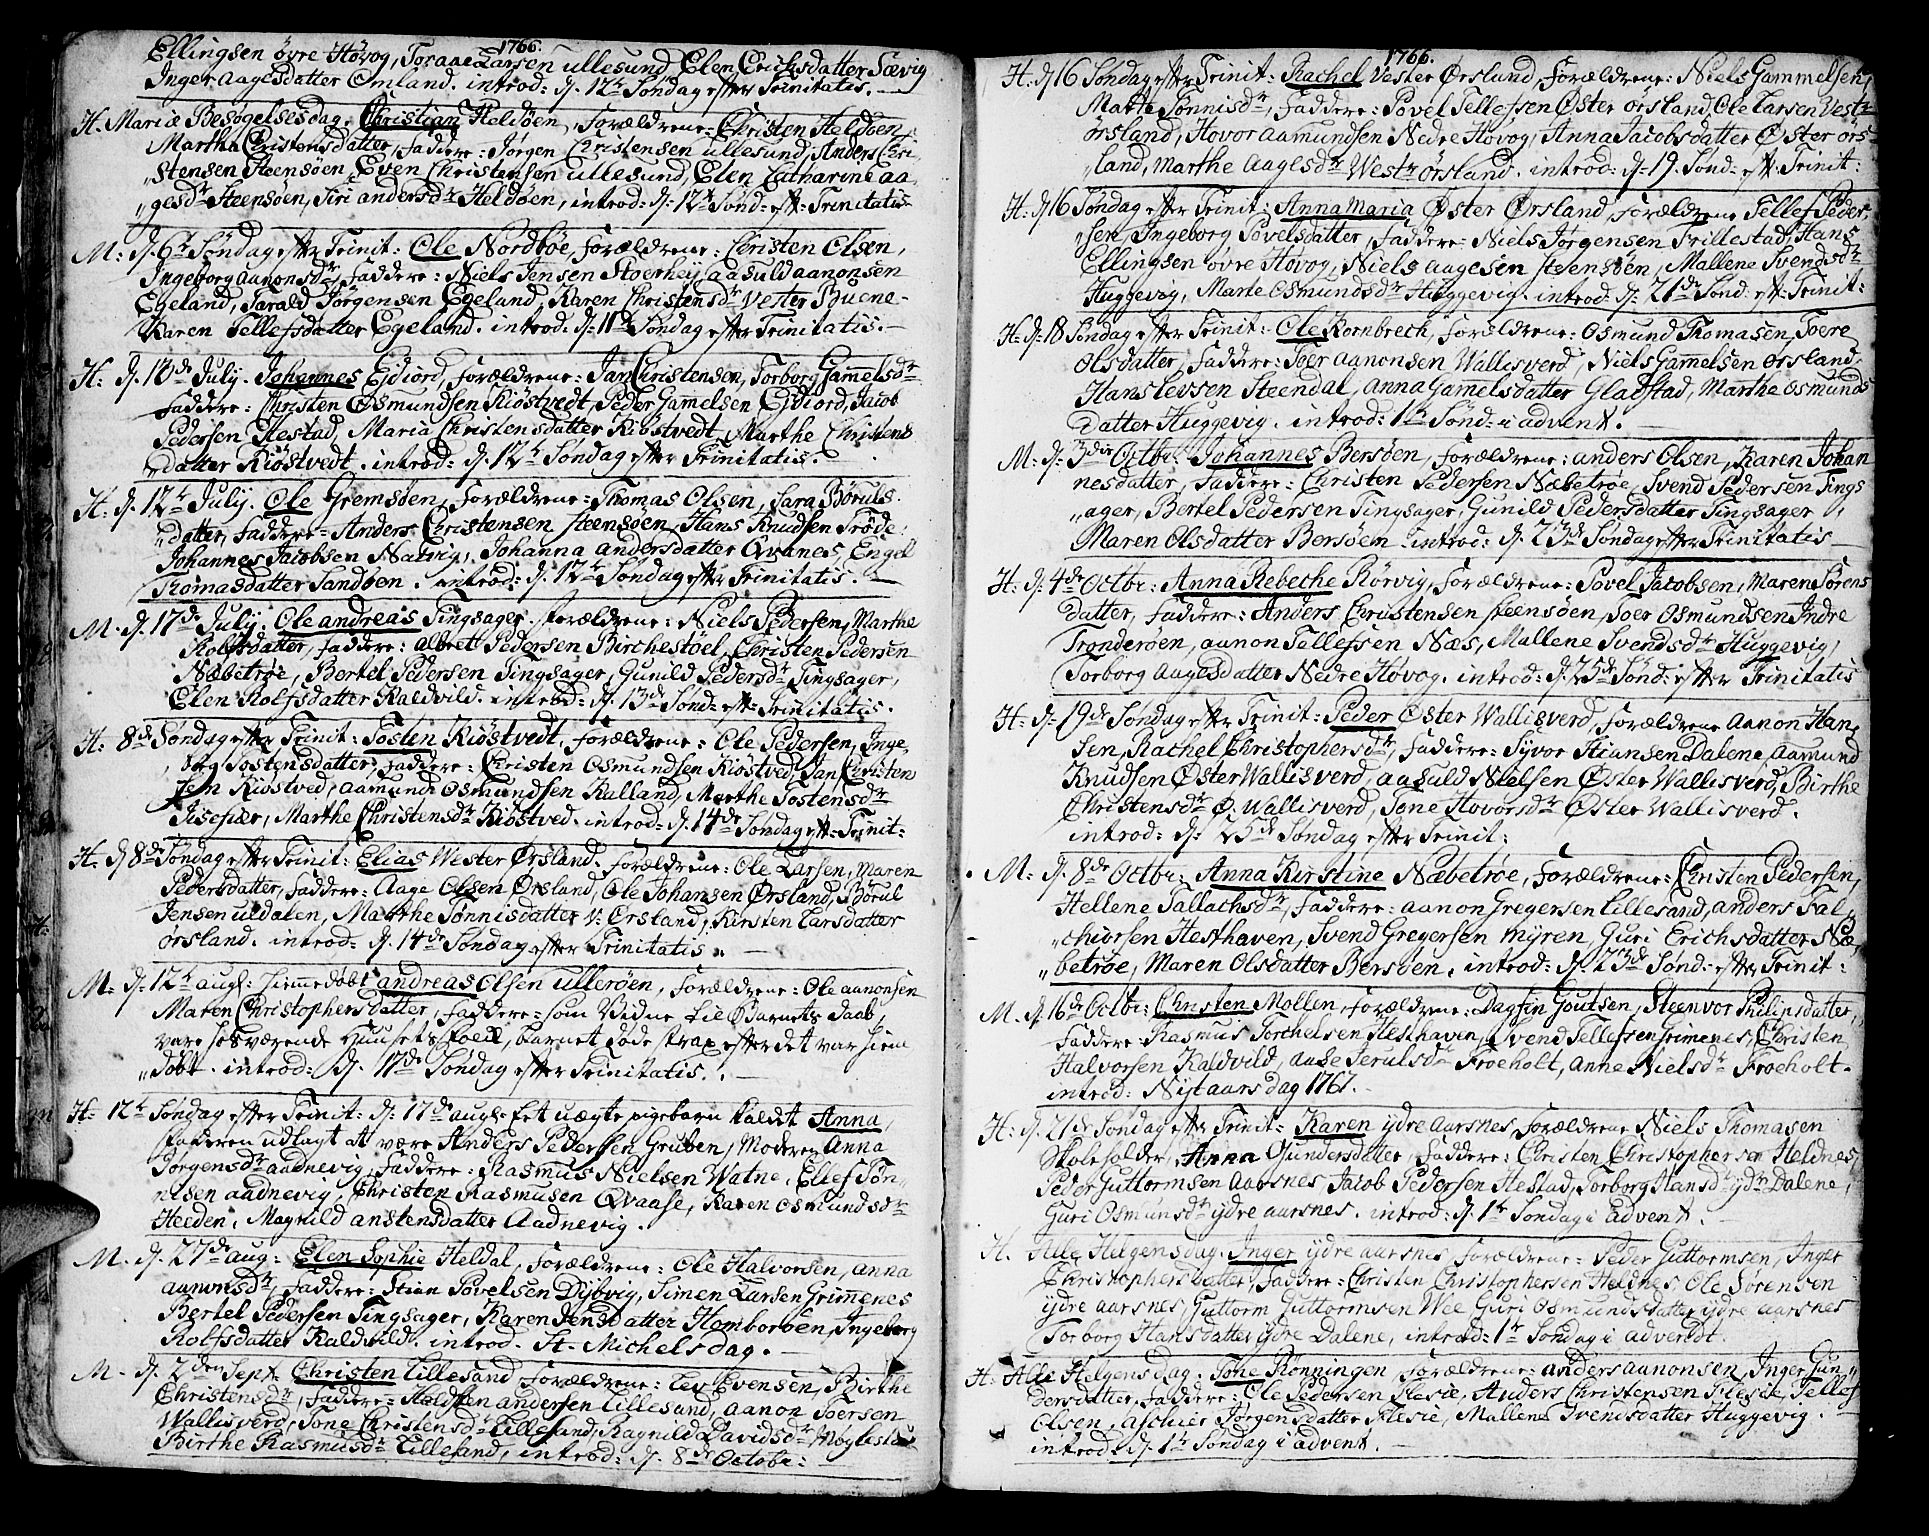 1766.
Ellingsen övre Hövog, Torane Larsen ullesund Elen Erichsdatter Sævig
Inger Aagesdatter Omland. introd: d. 12te Søndag efter Trinitatis.
H. Mariæ Besøgelsesdag. Christian Heldöen, Forældrene: Christen Heldöen,
Martha Christensdatter, Faddere: Jørgen Christensen ullesund, Anders Chri-
„stensen Steensöen, Even Christensen ullesund, Elen Catharine Aa-
„gesdr Steensöen, Siri andersdr Heldöen, introd: d. 12te Sønd: eft: Trinitatis
M: d. 6te Søndag efter Trinit: Ole Nordböe, Forældrene: Christen Olsen,
Ingeborg Aanonsdr, Faddere: Niels Jensen Stoerhej, aasuld aanonsen
Egeland, Tarald Jörgensen Egeland, Karen Christensdr Vester Buene-
Karen Tellefsdatter Egeland. introd: d. 11te Søndag efter Trinitatis.
H. d. 10de July. Johannes Ediord, Forældrene: Jan Christensen, Torborg Gamelsdr
Faddere: Christen Osmundsen Kiöstvedt, Peder Gamelsen Ediord, Jacob
Pedersen Hestad, Maria Christensdatter Kiöstvedt, Marthe Christens
datter Kiöstvedt. introd: d. 12te Søndag efter Trinitatis.
H. d. 12te July. Ole Gremsöen, Forældrene: Thomas Olsen, Sara Böruls
„datter, Faddere: Anders Christensen Steensöen, Hans Knudsen Tröde,
Johannes Jacobsen Natvig, Johanna andersdatter Qvanes, Engel
Thomasdatter Sandöen. introd: d. 12te Søndag efter Trinitatis.
M. d. 17de July. Ole andreas Tingsager. Forældrene: Niels Pedersen, Marthe
Rolfsdatter, Faddere: Albret Pedersen Birchestöel, Christen Pedersen
Næbetröe, Bertel Pedersen Tingsager, Gunild Pedersdr Tingsager,
Elen Rolfsdatter Kaldvild. introd: d. 13de Sønd: eft: Trinitatis.
H. 8de Søndag efter Trinit: Tosten Kiöstvedt, Forældrene: Ole Pedersen, Inge
„borg Tostensdatter, Faddere: Christen Osmundsen Kiöstved, Jan Christen
sen Kiöstved, aamund Osmundsen Kalland, Marthe Tostensdr
Tisefiær, Marthe Christensdr Kiöstved. introd: d. 14de Søndag eft: Trinit:
H. d. 8de Søndag efter Trinit: Elias Wester Ørsland. Forældrene: Ole Larsen, Maren
Pedersdatter, Faddere: Aage Olsen Ørsland, Ole Johansen Ørsland, Börul
Jensen uldalen, Marthe Tönnisdatter V: Ørsland, Kirsten Larsdatter
ørsland. introd: d. 14de Søndag efter Trinitatis.
M: d. 12te augs: hiemedöbt andreas Olsen ulleröen, Forældrene: Ole aanonsen
Maren Christophersdatter, Faddere: som Vidne til Barnets Daab,
vare hosværende Huusets Folk, barnet döde strax efter det var hiem
„döbt. introd: d. 17de Søndag efter Trinitatis.
H. 12te Søndag efter Trinit: d: 17de augs: Eet uægte pigebarn kaldet Anna,
Faderen udlagt at være Anders Pedersen Gruben, Moderen Anna
Jørgensdr aadnevig, Faddere: Rasmus Nielsen Watne, Ellef Tön-
nisen aadnevig, Christen Rasmusen Qvaase, Karen Osmundsdr
Heeden, Magnild anstensdatter Aadnevig.
M. d. 27de aug: Elen Sophie Heldal, Forældrene: Ole Halvorsen, anna
aanonsdr, Faddere: Stian Povelsen Dijbvig, Simen Larsen Grimenes
Bertel Pedersen Tingsager, Karen Jensdatter Homboröen, Ingeborg
Rolfsdatter Kaldvild. introd. St. Michelsdag.
M. d. 2den Sept. Christen Lillesand Forældrene: Lev Evensen, Birthe
Christensdr, Faddere: Haldsten andersen Lillesand, aanon Toersen
Wallisverd, Tone Christensdr Lillesand, Ragnild Davidsdr Moglestue
Birthe Rasmusdr Lillesand, introd: d. 8de Octobr:
1766.
H. d. 16 Søndag efter Trinit: Rachel Vester Ørsland, Forældrene: Niels Gammelsen,
Marte Tönnisdr, Faddere: Povel Tellefsen Öster örsland, Ole Larsen Vestr
örsland, Hovor Aamundsen Nedre Hovog, Anna Jacobsdatter Öster örs-
„land, Marthe Aagesdr Westr örsland. introd: d. 19. Sønd: eft: Trinit:
H: d. 16 Søndag efter Trinit: Anna Maria Öster Ørsland, Forældrene Tellef Peder-
„sen, Ingeborg Povelsdatter, Faddere: Niels Jørgensen Trillestad, Hans
Ellingsen övre Hövog, Niels Aagesen Steensöen, Mallene Svendsdr
Huggevig, Marte Osmundsdr Huggevig. introd: d. 21de Sønd: eft: Trinit:
H: d. 18 Søndag efter Trinit: Ole Kornbrech, Forældrene: Osmund Thomasen, Toere
Olsdatter, Faddere: Toer aanonsen Wallisverd, Niels Gamelsen Orsland,
Hans Levsen Steendal, Anna Gamelsdatter Gladstad, Marthe Osmunds
datter Huggevig. introd: 1te Sönd: i advent.
M: d: 3die Octbr. Johannes Bersöen, Forældrene: anders Olsen, Karen Johan
nesdatter, Faddere: Christen Pedersen Næbetröe, Svend Pedersen Tings
„ager, Bertel Pedersen Tingsager, Gunild Pedersdatter Tingsager,
Maren Olsdatter Bersöen. introd: d. 23de Søndag efter Trinitatis
H: d. 4de Octbr: Anna Rebecke Rörvig, Forældrene: Povel Jacobsen, Maren Sörens
datter, Faddere: Anders Christensen Steensöen, Toer Osmundsen Indre
Tronderöen, aanon Tellefsen Næs, Mallene Svendsdr Huggevig,
Torborg Aagesdatter Nedre Hövog. introd: d. 25de Sönd: efter Trinitatis
H: d: 19de Søndag efter Trinit: Peder Öster Wallisverd, Forældrene Aanon Han-
sen, Rachel Christophersdr, Faddere: Syvor Stiansen Dalene, Aamund
Knudsen Öster Wallisverd, aasuld Nielsen Öster Wallisverd, Birthe
Christensdr Ö. Wallisverd, Tone Hovorsdr Öster Wallisverd.
introd: d. 25de Søndag efter Trinit:
M: d. 8de Octbr: Anna Kirstine Næbetröe, Forældrene: Christen Pedersen,
Hellene Tallachsdr, Faddere: aanon Gregersen Lillesand, anders Fal-
„chiorsen Hesthaven, Svend Gregersen Myren, Guri Erichsdatter Næ-
„betröe, Maren Olsdatter Bersöen, introd: d. 23de Sønd: efter Trinit:
M. d. 16de Octbr: Christen Mollen, Forældrene: Dagfin Goutsen, Steenvor Philipsdatter,
Faddere: Rasmus Torchelsen Hesthaven, Svend Tellefsen Grimenes, Christen
Halvorsen Kaldvild, aase Serulsdr Froeholt, Anne Nielsdr Froeholt.
introd: Nijtaarsdag 1767.
H: d. 21de Søndag efter Trinit: Karen ydre Aarsnes, Forældrene Niels Thomasen
Skoleholder, Anna Gundersdatter, Faddere: Christen Christophersen Heldnes,
Peder Guttormsen Aarsnes, Jacob Pedersen Hestad, Torborg Hansdr ydr Dalene,
Guri Osmunsdr ydre aarsnes. introd: d. 1te Søndag i advent.
H. Alle Helgensdag. Inger ydre aarsnes, Forældrene: Peder Guttormsen, Inger
Christophersdatter, Faddere: Christen Christophersen Heldnes, Ole Sörensen
ydre aarsnes, Guttorm Guttormsen Wee Guri Osmundsdatter ydre aarsnes
Torborg Hansdatter ydre Dalene, introd: 1te Søndag i advendt.
H. Alle Helgensdag. Tone Rönningen, Forældrene: anders aanonsen, Inger Gun-
dersdatter, Faddere: Ole Pedersen Flesie, Anders Christensen Flesie, Tellef
Olsen, Aschier Jørgensdatter Flesie, Mallene Svendsdatter Huggevig.
introd: d. 1te Søndag i advent.